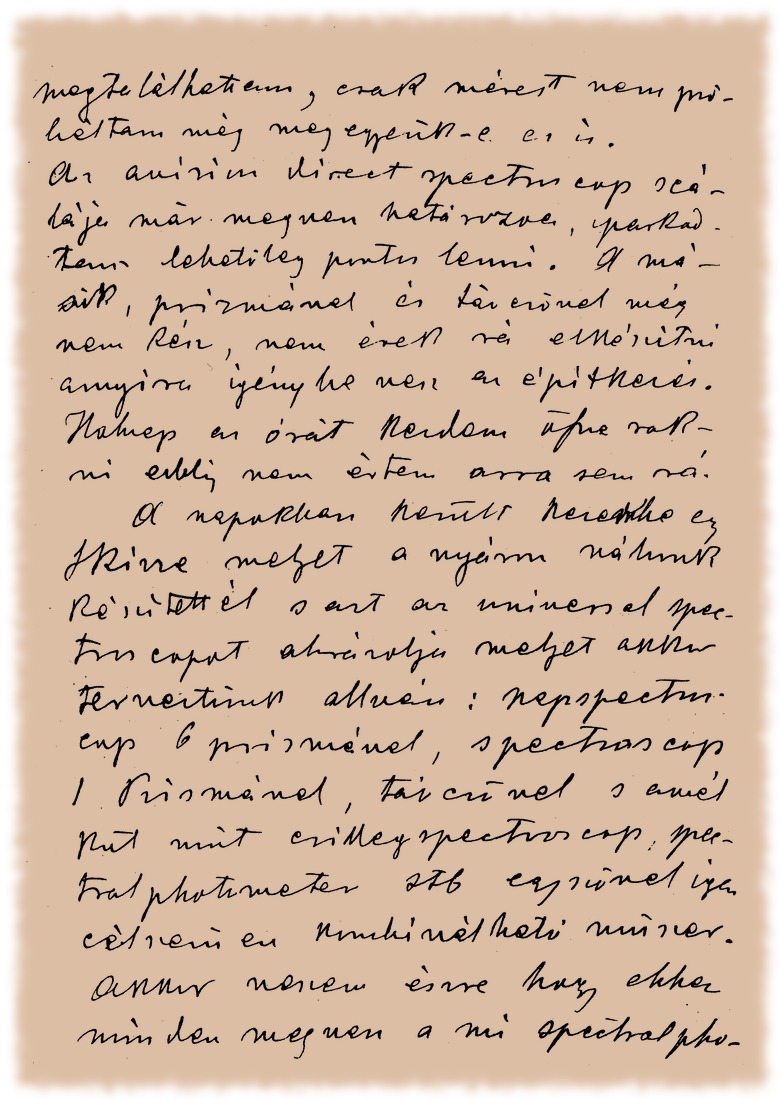 megtaláthatom, csak mérést nem pró-
báltam még meg egyezik-e ez is.
Az avision direct spectroscop scá-
lája már megvan határozva, iparkod-
tam lehetőleg pontos lenni. A má-
sik, prizmával és távcsővel még
nem kész, nem érek rá elkészítni
annyira igénybe vesz az építkezés.
Holnap az órát kezdem öfne rak-
ni eddig nem értem arra sem rá.
A napokban került kezembe egy
Skizze melyet a nyáron nálunk
készítettél s azt az universal spec-
troscopot ábrázolja melyet akkor
terveztünk állván: napspectros-
cop 6 prismával, spectroscop
1 Prismával, távcsővel s anél
kül mint csillagspectroscop, spec-
tralphotometer stb egyszóval igen
célszerűen kombinálható műszer.
Akkor veszem észre hogy ehhez
minden megvan a mi spectralpho-